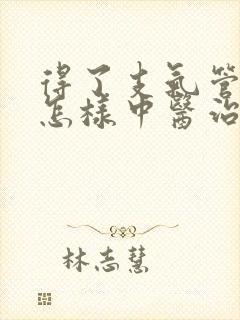 得了支氣管
怎樣中醫治
林志慧